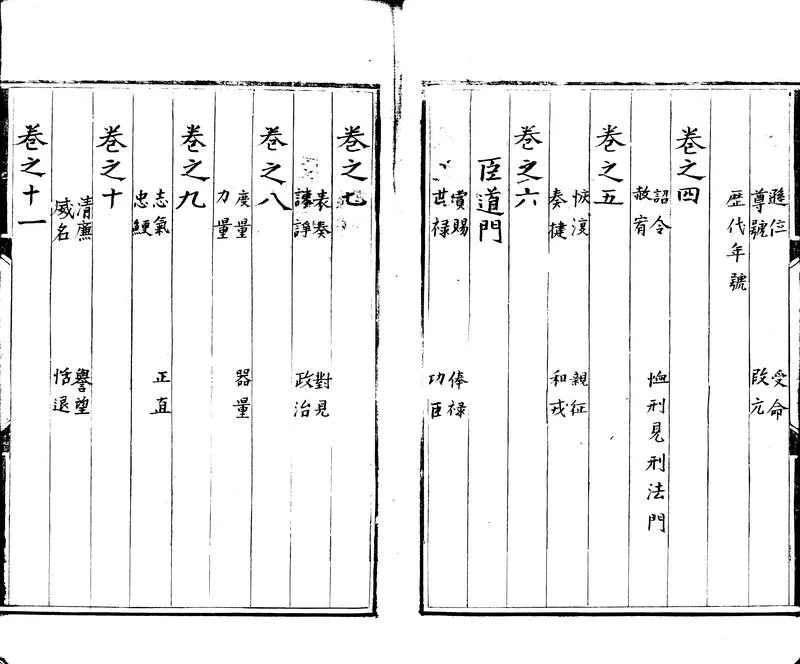 遜位 受命
尊號 改元
歷代年號
卷之四
詔令
赦宥 恤刑見刑法門
卷之五
恢復 親征
奏捷 和戎
卷之六
臣道門
賞賜 俸禄
世禄 功臣
卷之七
表奏 對見
諫諍 政治
卷之八
度量 器量
力量
卷之九
志氣 正直
忠鯁
卷之十
清廉 譽望
威名 恬退
卷之十一